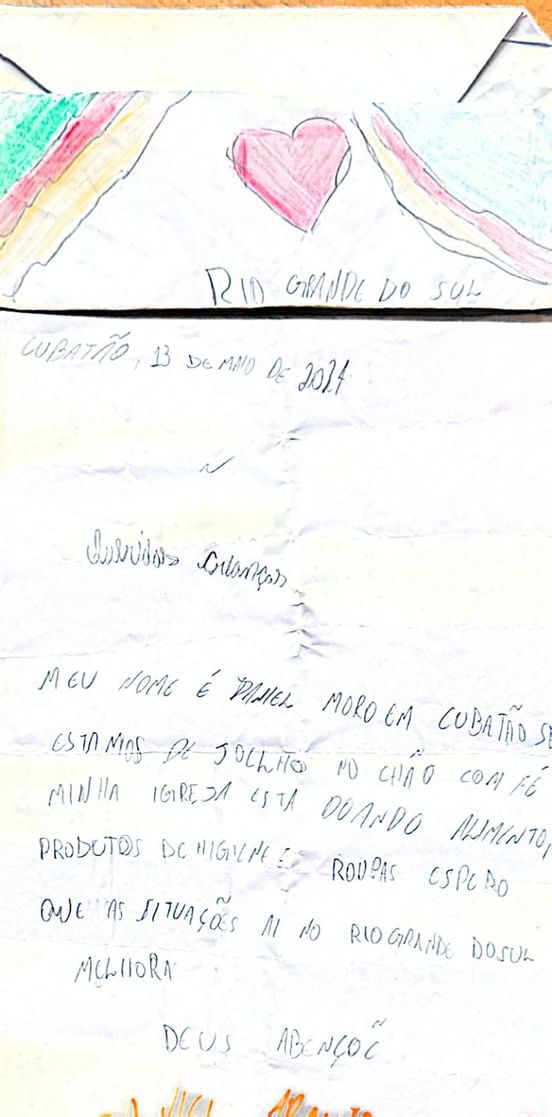 RIO GRANDE DO SUL
CUBATÃO, 13 DE MAIO DE 2024
Queridas crianças
MEU NOME É DANIEL MORO EM CUBATÃO SE
ESTAMOS DE JOELHOS NO CHÃO COM FÉ
MINHA IGREJA ESTA DOANDO ALIMENTO,
PRODUTOS DE HIGIENE E ROUPAS ESPERO
QUE AS SITUAÇÕES AI NO RIO GRANDE DO SUL
MELHORA
DEUS ABENÇOE